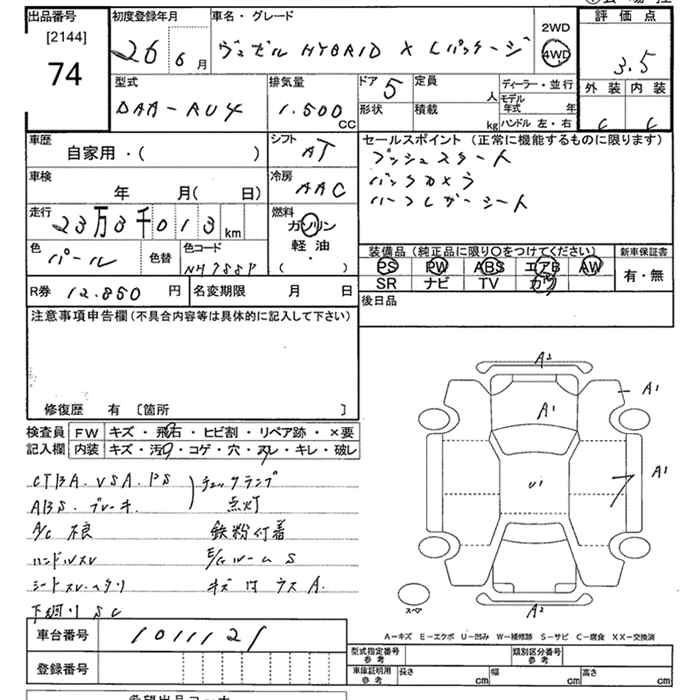 出品番号
[2144]
74
初度登録年月
26年 6月
車名・グレード
ヴェゼル HYBRID X Lパッケージ
2WD
4WD
評価点
3.5
外装 内装
C C
型式
DAA-RU4
排気量
1.500 CC
ドア 5
形状
定員 人
積載 kg
ディーラー・並行
モデル年式 年
ハンドル 左・右
車歴
自家用・( )
シフト
AT
セールスポイント(正常に機能するものに限ります)
プッシュスタート
バックカメラ
ハーフレザーシート
車検
年 月( 日)
冷房
AAC
走行
23万3千013 km
燃料
ガソリン
軽油
( ・ )
色
パール
色替
色コード
NH788P
装備品(純正品に限り○をつけてください)
PS PW ABS エアB AW
SR ナビ TV カワ
新車保証書
有・無
R券 12.850 円
名変期限 月 日
後日品
注意事項申告欄(不具合内容等は具体的に記入して下さい)
修復歴 有 [箇所 ]
検査員記入欄
FW キズ・飛石・ヒビ割・リペア跡・×要
内装 キズ・汚れ・コゲ・穴・スレ・キレ・破レ
CTBA. VSA. PS
ABS. ブレーキ.
チェックランプ
点灯
A/C 不良
鉄粉付着
ハンドルスレ
E/gルーム S
シートスレ・ヘタリ
キズ凹 ウスA.
下廻り SC
A2
A1
A1
U1
A1
A2
スペア
A−キズ E−エクボ U−凹み W−補修跡 S−サビ C−腐食 XX−交換済
車台番号
1011121
登録番号
型式指定番号 参考
類別区分番号 参考
車庫証明用 参考
長さ cm
幅 cm
高さ cm